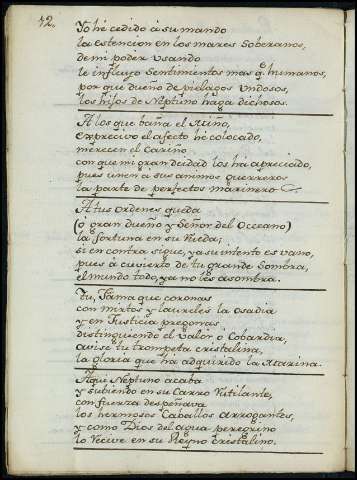 42.
Yo hé cedido á su mando
la estencion en los mares Soberanos,
de mi poder usando
le influyo Sentimientos mas q.e humanos,
por que dueño de pielagos Undosos,
los hijos de Neptuno haga dichosos.
A los que baña el Miño,
exprecivo el afecto hé colocado,
merecen el Cariño
con que mi gran deidad los há apreciado,
pues unen á sus animos guerreros
la parte de perfectos marineros.
A tus ordenes queda
(ó gran dueño y Señor del Occeano)
la fortuna en su Rueda;
si en contra sigue, ya su intento es vano,
pues á cuvierto de tu grande Sombra,
el mundo todo, ya no les asombra.
Tu, Fama que coronas
con mirtos y laureles la osadia
y en Justicia pregonas
distinguiendo el valor, ó Cobardia,
avise tu trompeta cristalina,
la gloria que há adquirido la Marina.
Aqui Neptuno acaba
y subiendo en su Carro Rutilante,
con fuerza despeñava
los hermosos Caballos arrogantes,
y como Dios del agua peregrino
lo Recive en su Reyno cristalino.